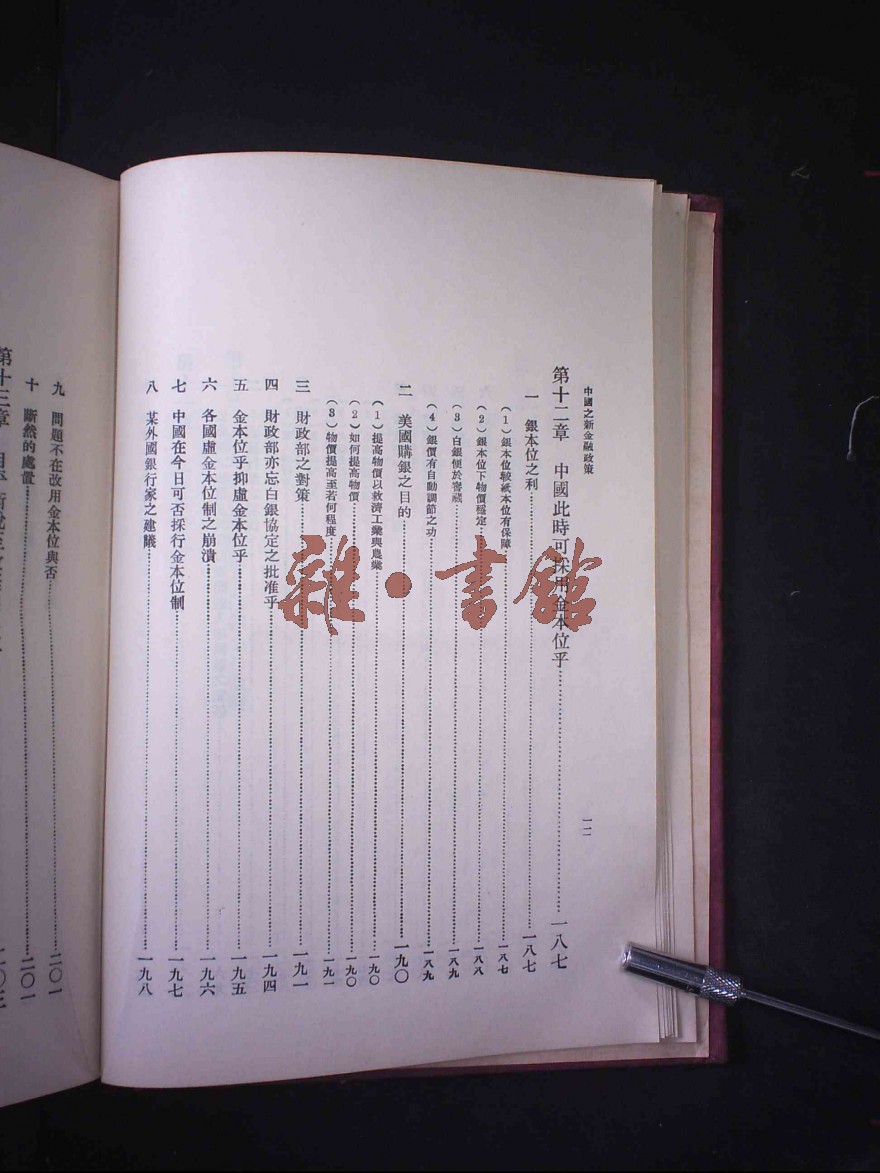 中國之新金融政策
一二
第十二章 中國此時可採用金本位乎……一八七
一 銀本位之利……一八七
（1）銀本位較紙本位有保障……一八七
（2）銀本位下物價穩定……一八八
（3）白銀便於窖藏……一八九
（4）銀價有自動調節之功……一八九
二 美國購銀之目的……一九〇
（1）提高物價以救濟工業與農業……一九〇
（2）如何提高物價……一九〇
（3）物價提高至若何程度……一九一
三 財政部之對策……一九一
四 財政部亦忘白銀協定之批准乎……一九四
五 金本位乎抑虛金本位乎……一九五
六 各國虛金本位制之崩潰……一九六
七 中國在今日可否採行金本位制……一九七
八 某外國銀行家之建議……一九八
九 問題不在改用金本位與否……二〇一
十 斷然的處置……二〇一
第十三章
雜·書館